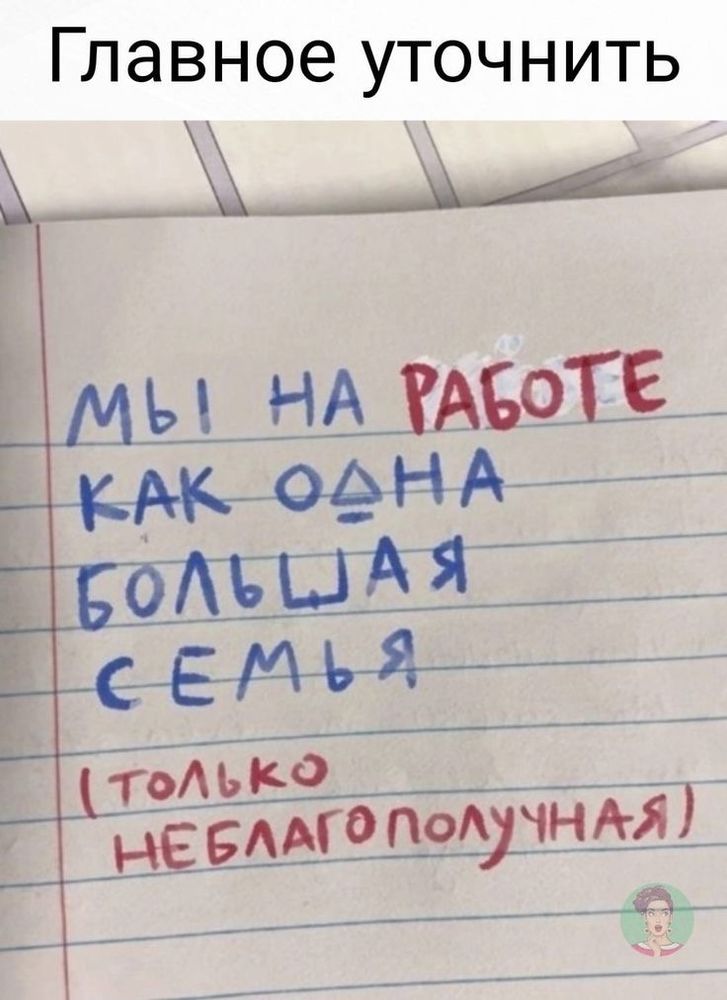 Главное уточнить
МЫ НА РАБОТЕ
КАК ОДНА
БОЛЬШАЯ
СЕМЬЯ
(ТОЛЬКО
НЕБЛАГОПОЛУЧНАЯ)